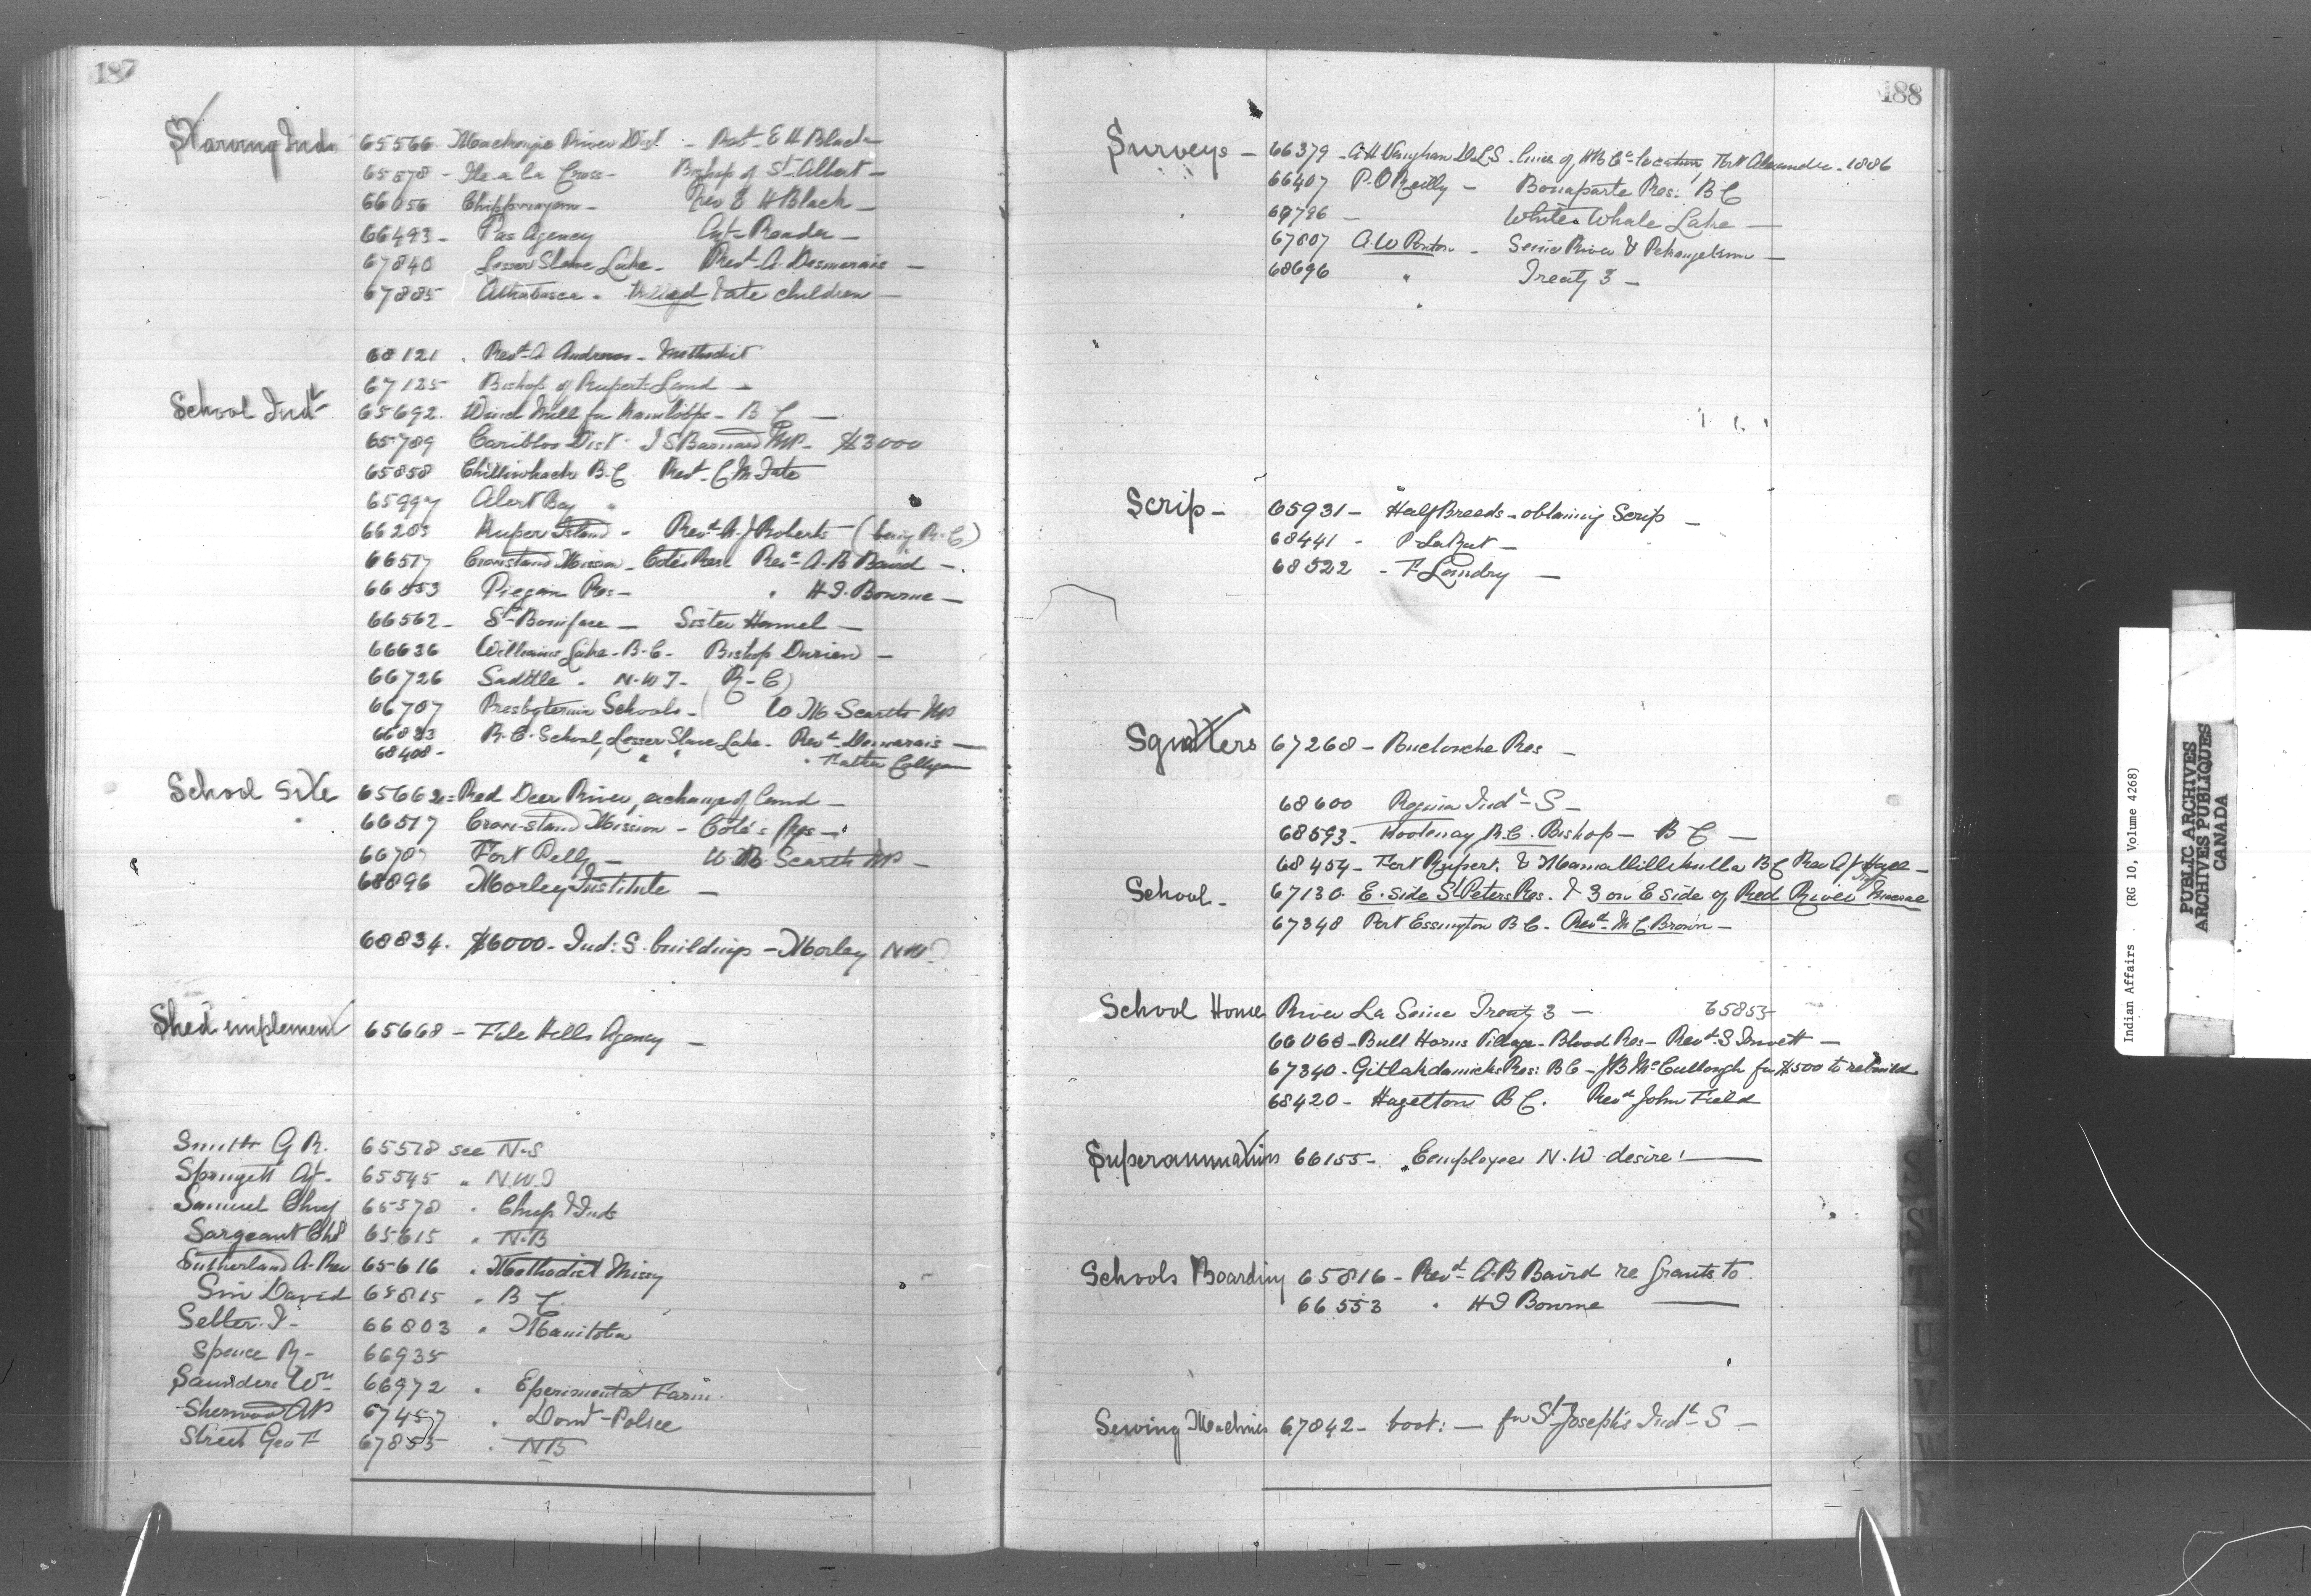 187
Starving Inds 65566 Mackenzie River Dist - Revd E H Black -
65578 - Ile a la Cross - Bishop of St Albert -
66056 Chippwayan - Rev E H Black -
66493 - Pas Agency Agt Reader -
67840 Lesser Slave Lake - Revd A. Desmarais -
67885 Athabasca - Killed & ate children -
68121 . Revd A Andrews - Methodist
67125 Bishop of Ruperts Land -
School Indl 65692. Wind Mill for Kamloops - B C -
65789 Cariboo Dist - J S Barnard MP - $3000
65858 Chilliwhack B.C. Revd C M Tate
65997 Alert Bay "
66203 Kuper Island - Revd A. J Roberts (being R.C)
66517 Crowstand Mission - Cote's Res. Revd A.B Baird -
66553 Piegan Res - " H.T. Bourne -
66562 - St Boniface - Sister Hamel -
66636 Williams Lake - B.C - Bishop Durieu -
66726 Saddle - N.W.T - (R - C)
66707 Presbyterian Schools - W M Scarth MP
66833 R.C. School, Lesser Slave Lake - Revd Desmarais -
68408 - " " " Father
School Site 65662 = Red Deer River, exchange of land -
66517 Crow-stand Mission - Coté's Res -
66707 Fort Pelly - W. M. Scarth MP -
68896 Morley Institute -
68834. $6000 - Ind: S. buildings - Morley NW
Shed implement 65668 - File Hills Agency -
Smith G R. 65578 see N.S
Springett A J - 65545 " N.W.T
Samuel Chas 65578 " Chip & Inds
Sargeant Chs 65615 " N.B
Sutherland A. Rev 65616 " Methodist Missy
Sin David 65815 " B C
Selter. I - 66803 " Manitoba
Spence R - 66935
Saunders Wm 66972 " Eperimental Farm.
Sherwood AP 67457 " Domt - Police
Street Geo F 67855 " NB
188
Surveys - 66379 - A H Vaughan D.L.S. lines of HB Co location, Fort Alexander - 1886
66407 P. O Reilly - Bonaparte Res: B C
67796 - White Whale Lake -
67807 A. W Ponton - Seine River &
68696 " Treaty 3 -
Scrip - 65931 - Half Breeds - obtaining Scrip -
68441 - P. LaRat -
68522 - F Landry -
Squatters 67268 - Res -
68600 Regina Indl S -
68593 - Kootenay R.C. Bishop - B C -
68454 - Fort Rupert, & Mamallillikulla BC Rev A J Hall -
School - 67130 E. side St Peters Res. & 3 on E side of Red River
67348 Port Essington B C - Revd M C. Brown -
School House River La Seine Treaty 3 - 65853
66068 - Bull Horns Village - Blood Res - Revd S Trivett -
67340 - Gitlakdamicks Res: B C - J B McCullough for $500 to rebuild
68420 - Hazelton B C. Revd John Field
Superannuations 66155 - Employees N.W. desire! -
Schools Boarding 65816 - Revd A.B Baird re Grants to.
66553 " H T Bourne -
Sewing Machines 67842 - boot: - for St Joseph's Indl S -
S
S
T
U
V
W
Y
Indian Affairs (RG 10, Volume 4268)
PUBLIC ARCHIVES
ARCHIVES PUBLIQUES
CANADA